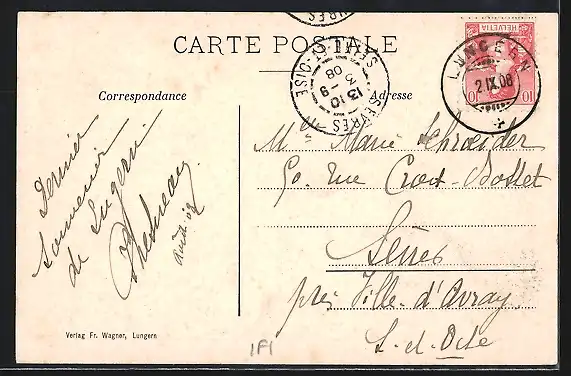 CARTE POSTALE
Correspondance
Adresse
HELVETIA
10 10
LUNGERN
2.IX.08
SÈVRES
SEINE-ET-OISE
13-10
3 -9
08
SÈVRES
Dernier
souvenir
de Lungern
Mlle Marie Schroeder
50. rue Croix-Bosset
Sèvres
près Ville-d'Avray
S-et-Oise
Verlag Fr. Wagner, Lungern
1F1